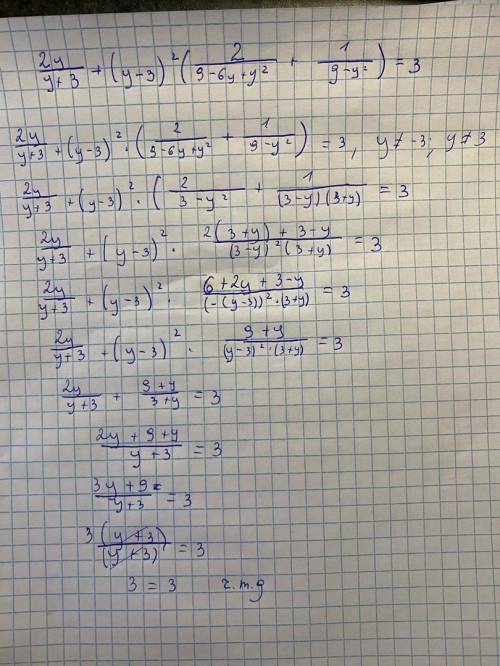 2y/(y+3) + (y-3)² (2/(9-6y+y²) + 1/(9-y²)) = 3
2y/(y+3) + (y-3)² · (2/(9-6y+y²) + 1/(9-y²)) = 3, y ≠ -3; y ≠ 3
2y/(y+3) + (y-3)² · (2/(3-y²) + 1/((3-y)(3+y)) = 3
2y/(y+3) + (y-3)² · (2(3+y)+3-y)/((3-y)²(3+y)) = 3
2y/(y+3) + (y-3)² · (6+2y+3-y)/((-(y-3))²·(3+y)) = 3
2y/(y+3) + (y-3)² · (9+y)/((y-3)²·(3+y)) = 3
2y/(y+3) + (9+y)/(3+y) = 3
(2y+9+y)/(y+3) = 3
(3y+9)/(y+3) = 3
3(y+3)/(y+3) = 3
3 = 3 ч.т.д